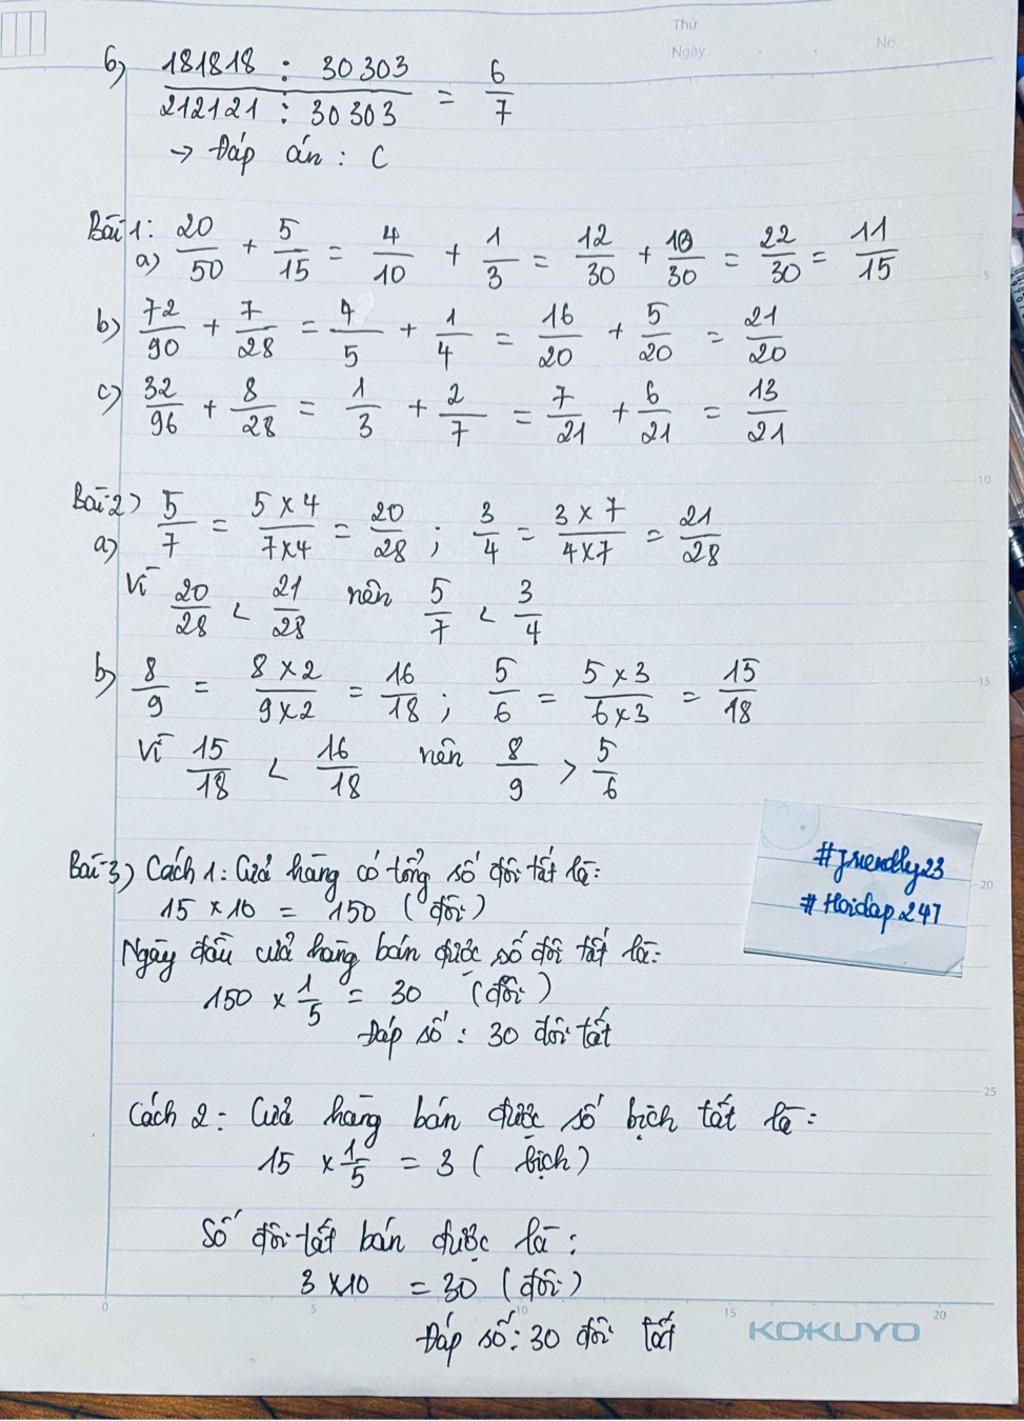 Thứ
Ngày . . No
6) 181818 : 30303 / 212121 : 30303 = 6/7
→ Đáp án : C
Bài 1:
a) 20/50 + 5/15 = 4/10 + 1/3 = 12/30 + 10/30 = 22/30 = 11/15
b) 72/90 + 7/28 = 4/5 + 1/4 = 16/20 + 5/20 = 21/20
c) 32/96 + 8/28 = 1/3 + 2/7 = 7/21 + 6/21 = 13/21
Bài 2)
a) 5/7 = 5 x 4/7 x 4 = 20/28 ; 3/4 = 3 x 7/4 x 7 = 21/28
Vì 20/28 < 21/28 nên 5/7 < 3/4
b) 8/9 = 8 x 2/9 x 2 = 16/18 ; 5/6 = 5 x 3/6 x 3 = 15/18
Vì 15/18 < 16/18 nên 8/9 > 5/6
Bài 3) Cách 1: Cửa hàng có tổng số đôi tất là:
15 x 10 = 150 (đôi)
Ngày đầu cửa hàng bán được số đôi tất là:
150 x 1/5 = 30 (đôi)
Đáp số : 30 đôi tất
Cách 2 : Cửa hàng bán được số bịch tất là :
15 x 1/5 = 3 ( bịch)
Số đôi tất bán được là :
3 x 10 = 30 (đôi)
Đáp số : 30 đôi tất
#friendly23
#Hoidap247
5
10
15
20
25
0 5 10 15 20
KOKUYO